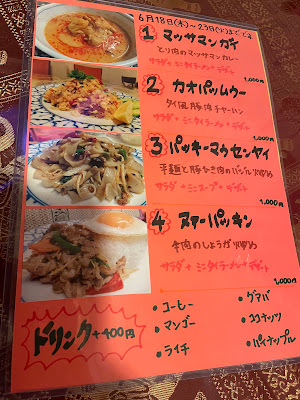 6月18日(木)~23日(火)まで
1 マッサマンガイ
とり肉のマッサマンカレー
サラダ+ミニタイラーメン+デザート
1,000円
2 カオパッムウー
タイ風豚肉チャーハン
サラダ+ミニタイラーメン+デザート
1,000円
3 パッキーマウセンヤイ
平麺と豚ひき肉のバジル炒め
サラダ+ミニスープ+デザート
1,000円
4 ヌアーパッキン
牛肉のしょうが炒め
サラダ+ミニタイラーメン+デザート
1,000円
ドリンク+400円
・コーヒー
・グアバ
・マンゴー
・ココナッツ
・ライチ
・パイナップル